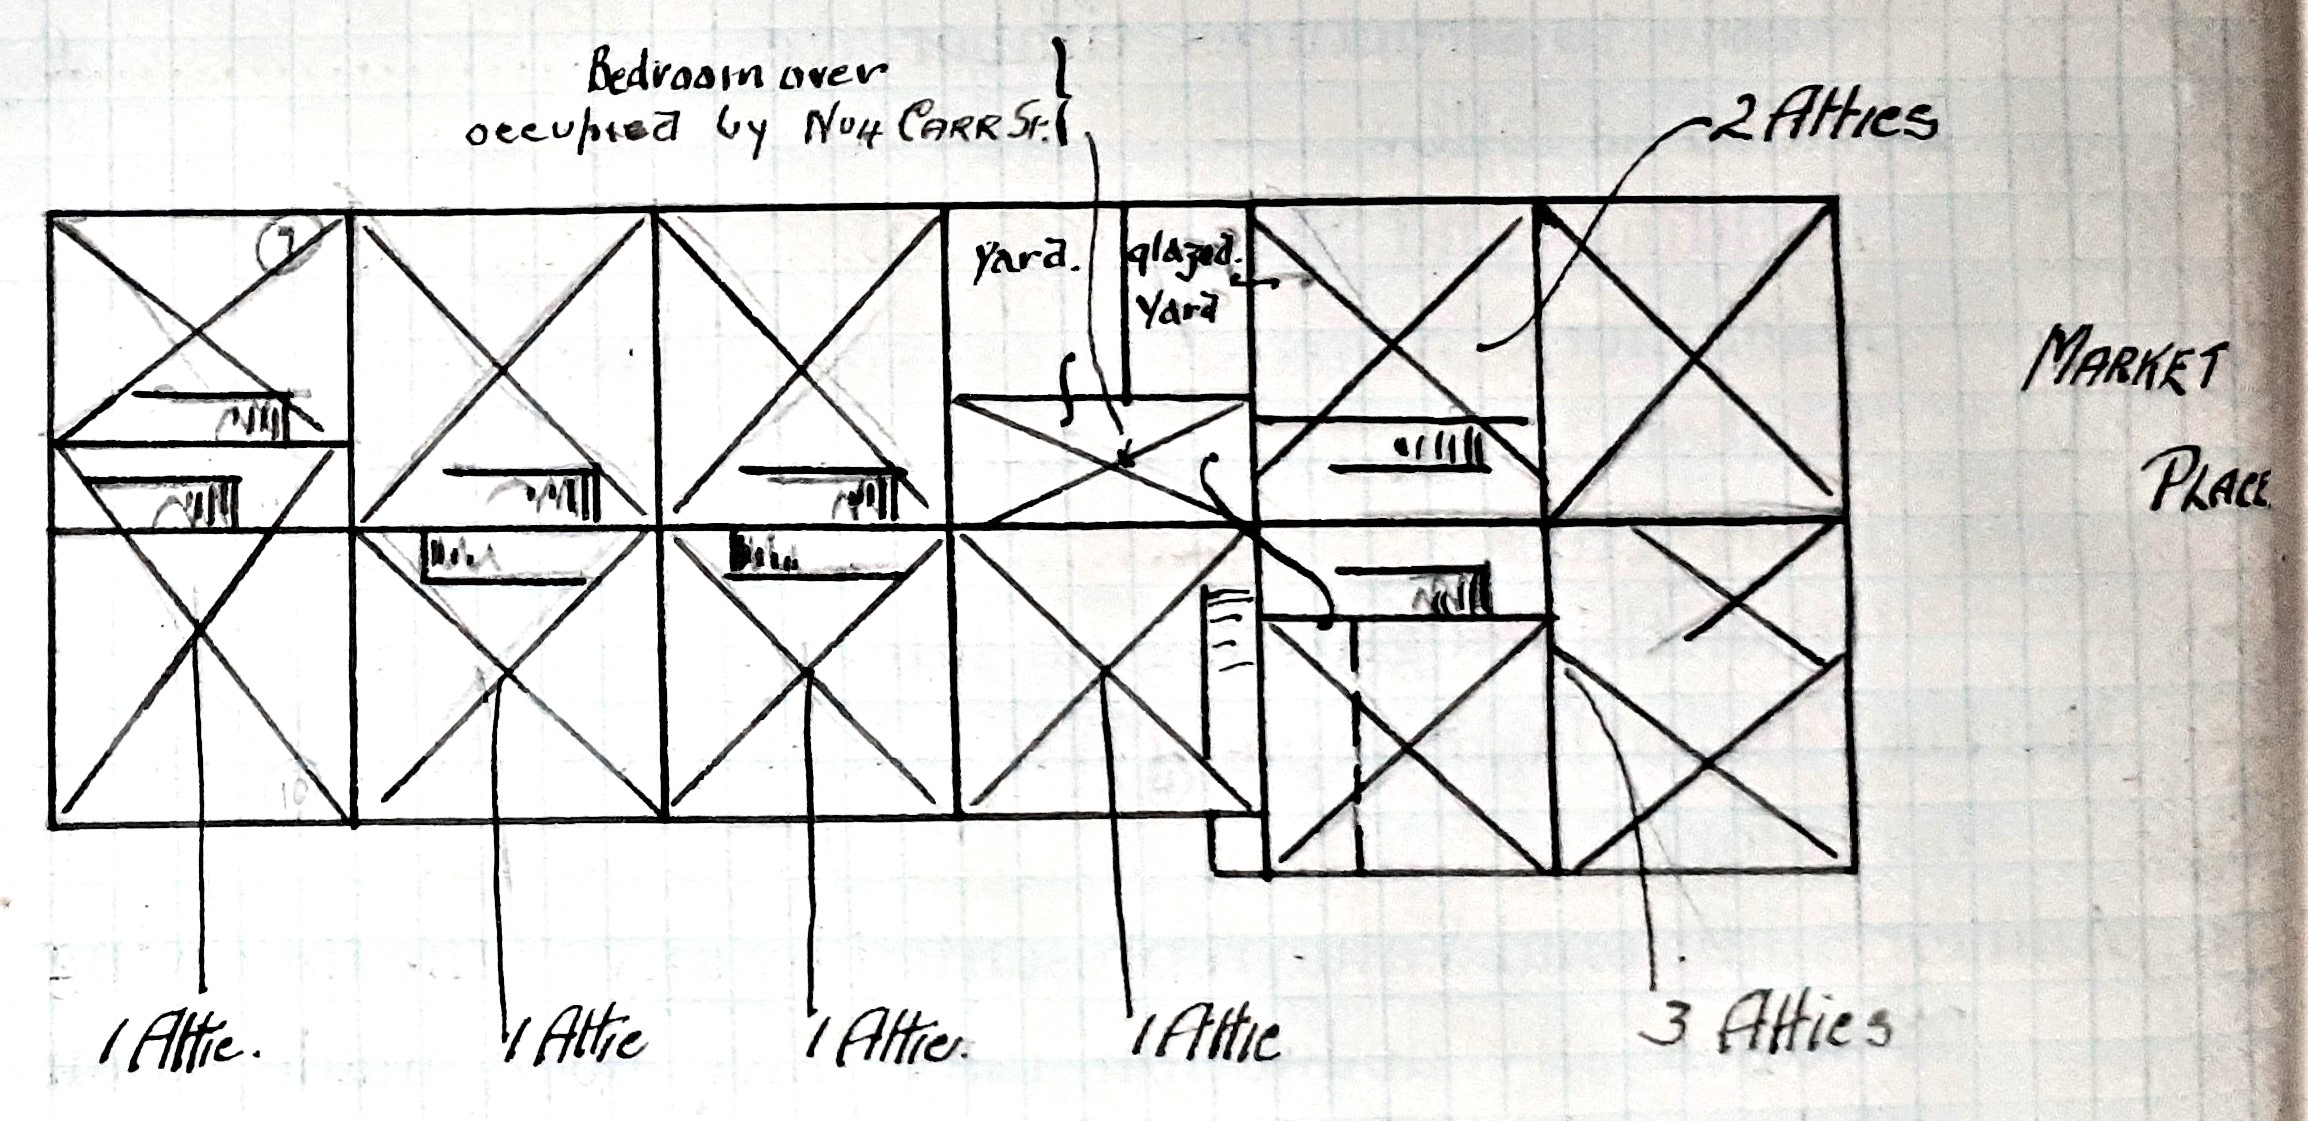 Bedroom over
occupied by No 4 CARR St.
2 Attics
yard.
glazed.
Yard
7
MARKET
PLACE
10
1 Attic.
1 Attic
1 Attic.
1 Attic
3 Attics